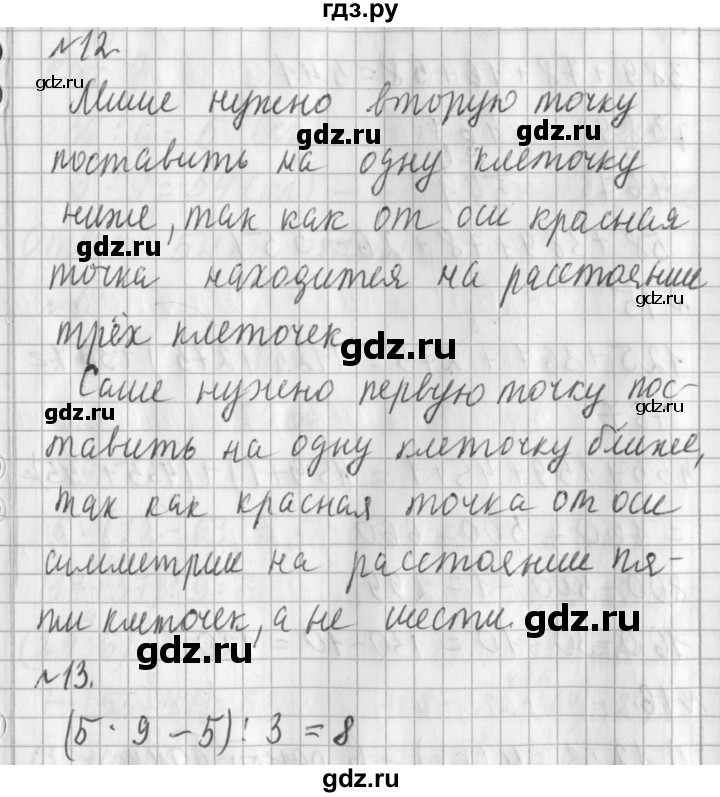 гдз.ру
№12.
gdz.ru
Мише нужно вторую точку
gdz.ru
gdz.ru
поставить на одну клеточку
ниже, так как от оси красная
gdz.ru
точка находится на расстоянии
gdz.ru
трёх клеточек.
gdz.ru
Саше нужно первую точку пос-
gdz.ru
gdz.ru
тавить на одну клеточку ближе,
так как красная точка от оси
gdz.ru
симметрии на расстоянии пя-
ти клеточек, а не шести.
gdz.ru
gdz.ru
№13.
(5 · 9 - 5) : 3 = 8
gdz.ru